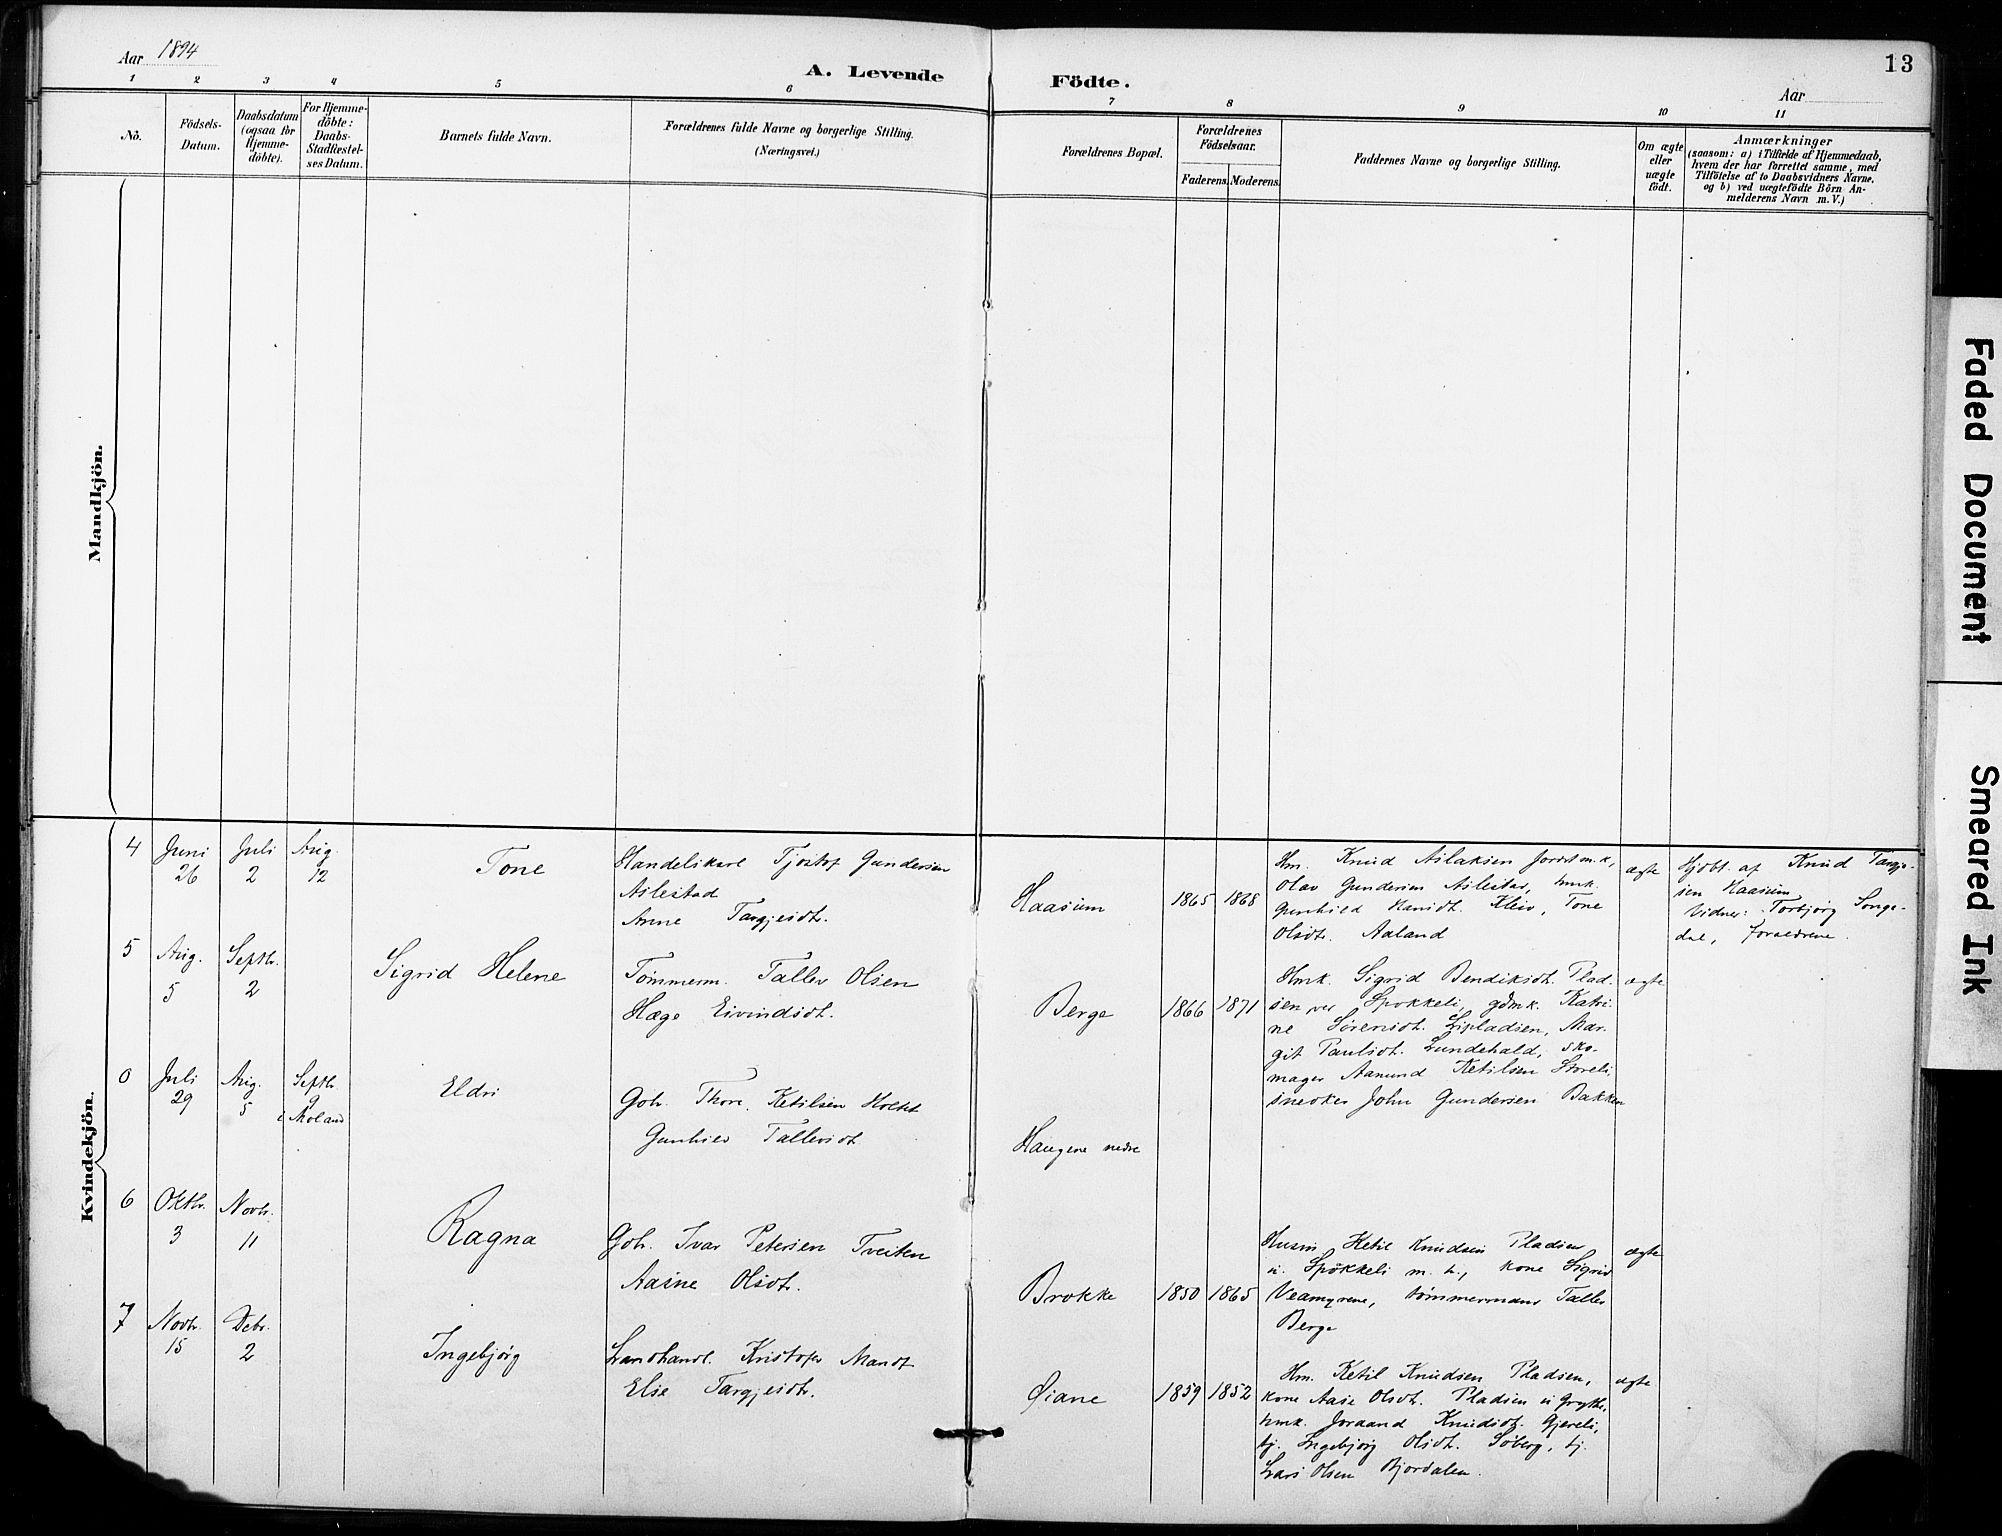 Aar 1894
A. Levende Födte.
13
Aar
1 2 3 4 5 6 7 8 9 10 11
No.
Födsels-
Datum.
Daabsdatum
(ogsaa for
Hjemme-
döbte).
For Hjemme-
döbte:
Daabs-
Stadfæstel-
ses Datum.
Barnets fulde Navn.
Forældrenes fulde Navne og borgerlige Stilling.
(Næringsvei.)
Forældrenes Bopæl.
Forældrenes
Födselsaar.
Faderens. Moderens.
Faddernes Navne og borgerlige Stilling.
Om ægte
eller
uægte
födt.
Anmærkninger
(saasom: a) i Tilfælde af Hjemmedaab,
hvem der har forrettet samme, med
Tilföielse af to Daabsvidners Navne,
og b) ved uægtefödte Börn An-
melderens Navn m. V.)
Mandkjön.
Kvindekjön.
4
Juni
26
Juli
2
Aug.
12
Tone
Handelskarl Tjostof Gundersen
Aslestad
Anne Targjeidt.
Haasum
1865 1868
Hm. Knud Aslaksen
Olav Gundersen Aslestad, hmk.
Gunhild Kleiv, Tone
Olsdt. Aaland
ægte
Hjdbt. af Knud Targje-
sen Haasum
Vidner: Torbjørg Songe-
dal, forældrene.
5
Aug.
5
Septbr.
2
Sigrid Helene
Tømmerm. Tallev Olsen
Hæge Eivindsdt.
Berge
1866 1871
Hmk. Sigrid Bendiksdt. Plad-
sen ver Spokkeli, gdmk. Katri-
ne Sørensdt. Lipladsen, Mar-
git Paulsdt. Lundehald, sko-
mager Aamund Ketilsen Storeli
snedker John Gundersen Bakken
ægte
0
Juli
29
Aug.
5
Septbr.
9
i Moland
Eldri
Gbr. Thore Ketilsen Holte
Gunhild Tallevsdt.
Haugene nedre
6
Oktbr.
3
Novbr.
11
Ragna
Gbr. Ivar Petersen Tveiten
Aasne Olsdt.
Brokke
1850 1865
Husm. Ketil Knudsen Pladsen
u. Spokkeli m. h., kone Sigrid
Veamyrene, tømmermand Tallev
Berge
ægte
7
Novbr.
15
Debr.
2
Ingebjørg
Landhandl. Kristofer Mandt
Else Targjeidt.
Øiane
1859 1852
Hm. Ketil Knudsen Pladsen,
kone Aase Olsdt. Pladsen u
hmk. Joraand Knudsdt. Gjereli,
tj. Ingebjørg Olsdt. Søberg, tj.
Lars Olsen Bjordalen.
ægte
Faded Document
Smeared Ink